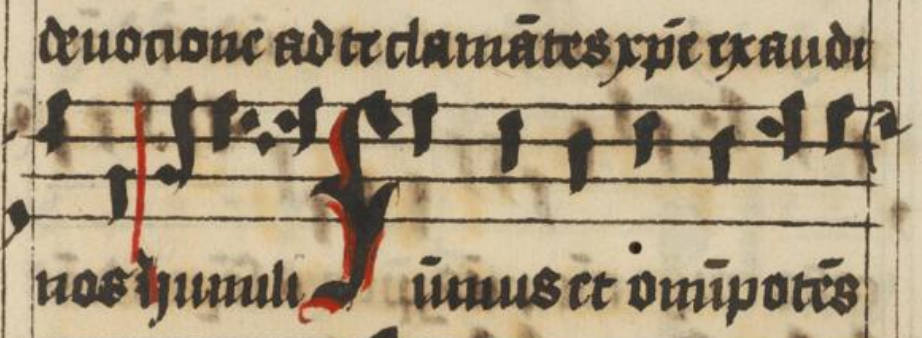 deuocione ad te clamātes xp̄e exaudi
nos humili Sūmus et omīpotēs